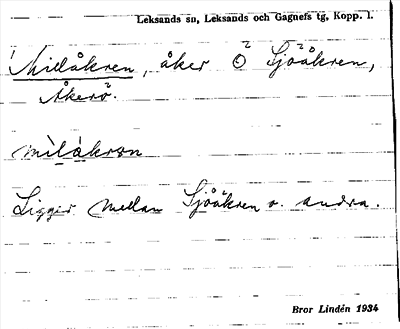 Leksands sn, Leksands och Gagnefs tg, Kopp. l.
Millåkren, åker Ö Sjöåkren,
Åkerö.
mìlàkrən
Ligger mellan Sjöåkren o. andra.
Bror Lindén 1934